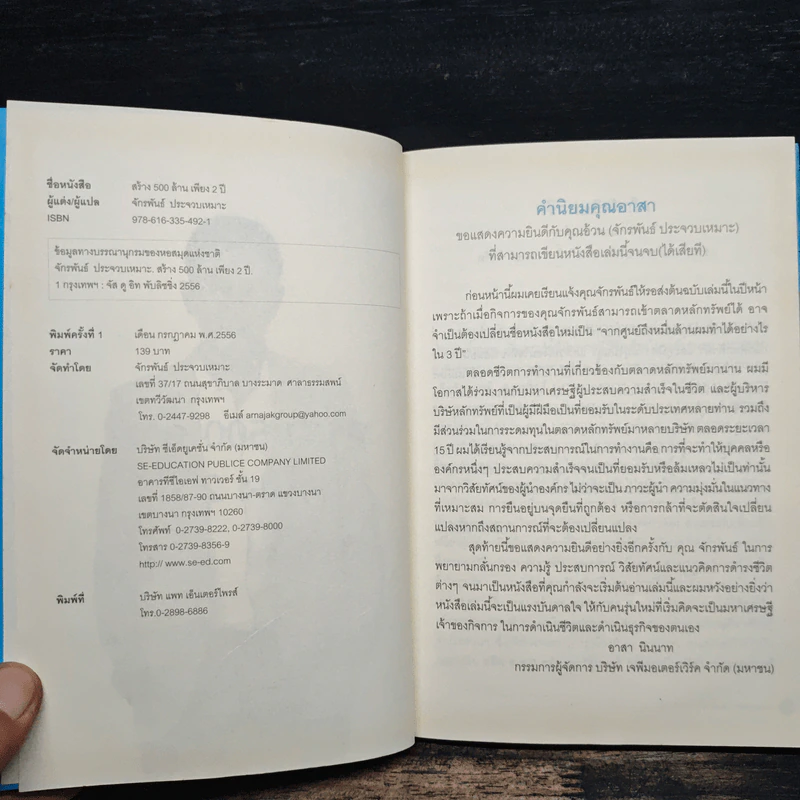 ชื่อหนังสือ สร้าง 500 ล้าน เพียง 2 ปี
ผู้แต่ง/ผู้แปล จักรพันธ์ ประจวบเหมาะ
ISBN 978-616-335-492-1
ข้อมูลทางบรรณานุกรมของหอสมุดแห่งชาติ
จักรพันธ์ ประจวบเหมาะ. สร้าง 500 ล้าน เพียง 2 ปี.
1 กรุงเทพฯ : จัส ดู อิท พับลิชชิ่ง 2556
พิมพ์ครั้งที่ 1 เดือน กรกฎาคม พ.ศ.2556
ราคา 139 บาท
จัดทำโดย จักรพันธ์ ประจวบเหมาะ
เลขที่ 37/17 ถนนสุขาภิบาล บางระมาด ศาลาธรรมสพน์
เขตทวีวัฒนา กรุงเทพฯ
โทร. 0-2447-9298 อีเมล์ arnajakgroup@yahoo.com
จัดจำหน่ายโดย บริษัท ซีเอ็ดยูเคชั่น จำกัด (มหาชน)
SE-EDUCATION PUBLICE COMPANY LIMITED
อาคารทีซีไอเอฟ ทาวเวอร์ ชั้น 19
เลขที่ 1858/87-90 ถนนบางนา-ตราด แขวงบางนา
เขตบางนา กรุงเทพฯ 10260
โทรศัพท์ 0-2739-8222, 0-2739-8000
โทรสาร 0-2739-8356-9
http:// www.se-ed.com
พิมพ์ที่ บริษัท แพท เอ็นเตอร์ไพรส์
โทร.0-2898-6886
คำนิยมคุณอาสา
ขอแสดงความยินดีกับคุณอ้วน (จักรพันธ์ ประจวบเหมาะ)
ที่สามารถเขียนหนังสือเล่มนี้จนจบ(ได้เสียที)
ก่อนหน้านี้ผมเคยเรียนแจ้งคุณจักรพันธ์ให้รอส่งต้นฉบับเล่มนี้ในปีหน้า
เพราะถ้าเมื่อกิจการของคุณจักรพันธ์สามารถเข้าตลาดหลักทรัพย์ได้ อาจ
จำเป็นต้องเปลี่ยนชื่อหนังสือใหม่เป็น "จากศูนย์ถึงหมื่นล้านผมทำได้อย่างไร
ใน 3 ปี"
ตลอดชีวิตการทำงานที่เกี่ยวข้องกับตลาดหลักทรัพย์มานาน ผมมี
โอกาสได้ร่วมงานกับมหาเศรษฐีผู้ประสบความสำเร็จในชีวิต และผู้บริหาร
บริษัทหลักทรัพย์ที่เป็นผู้มีฝีมือเป็นที่ยอมรับในระดับประเทศหลายท่าน รวมถึง
มีส่วนร่วมในการระดมทุนในตลาดหลักทรัพย์มาหลายบริษัท ตลอดระยะเวลา
15 ปี ผมได้เรียนรู้จากประสบการณ์ในการทำงานคือ การที่จะทำให้บุคคลหรือ
องค์กรหนึ่งๆ ประสบความสำเร็จจนเป็นที่ยอมรับหรือล้มเหลวไม่เป็นท่านั้น
มาจากวิสัยทัศน์ของผู้นำองค์กร ไม่ว่าจะเป็น ภาวะผู้นำ ความมุ่งมั่นในแนวทาง
ที่เหมาะสม การยืนอยู่บนจุดยืนที่ถูกต้อง หรือการกล้าที่จะตัดสินใจเปลี่ยน
แปลงหากถึงสถานการณ์ที่จะต้องเปลี่ยนแปลง
สุดท้ายนี้ขอแสดงความยินดีอย่างยิ่งอีกครั้งกับ คุณ จักรพันธ์ ในการ
พยายามกลั่นกรอง ความรู้ ประสบการณ์ วิสัยทัศน์และแนวคิดการดำรงชีวิต
ต่างๆ จนมาเป็นหนังสือที่คุณกำลังจะเริ่มต้นอ่านเล่มนี้และผมหวังอย่างยิ่งว่า
หนังสือเล่มนี้จะเป็นแรงบันดาลใจ ให้กับคนรุ่นใหม่ที่เริ่มคิดจะเป็นมหาเศรษฐี
เจ้าของกิจการ ในการดำเนินชีวิตและดำเนินธุรกิจของตนเอง
อาสา นินนาท
กรรมการผู้จัดการ บริษัท เจพีมอเตอร์เวิร์ค จำกัด (มหาชน)